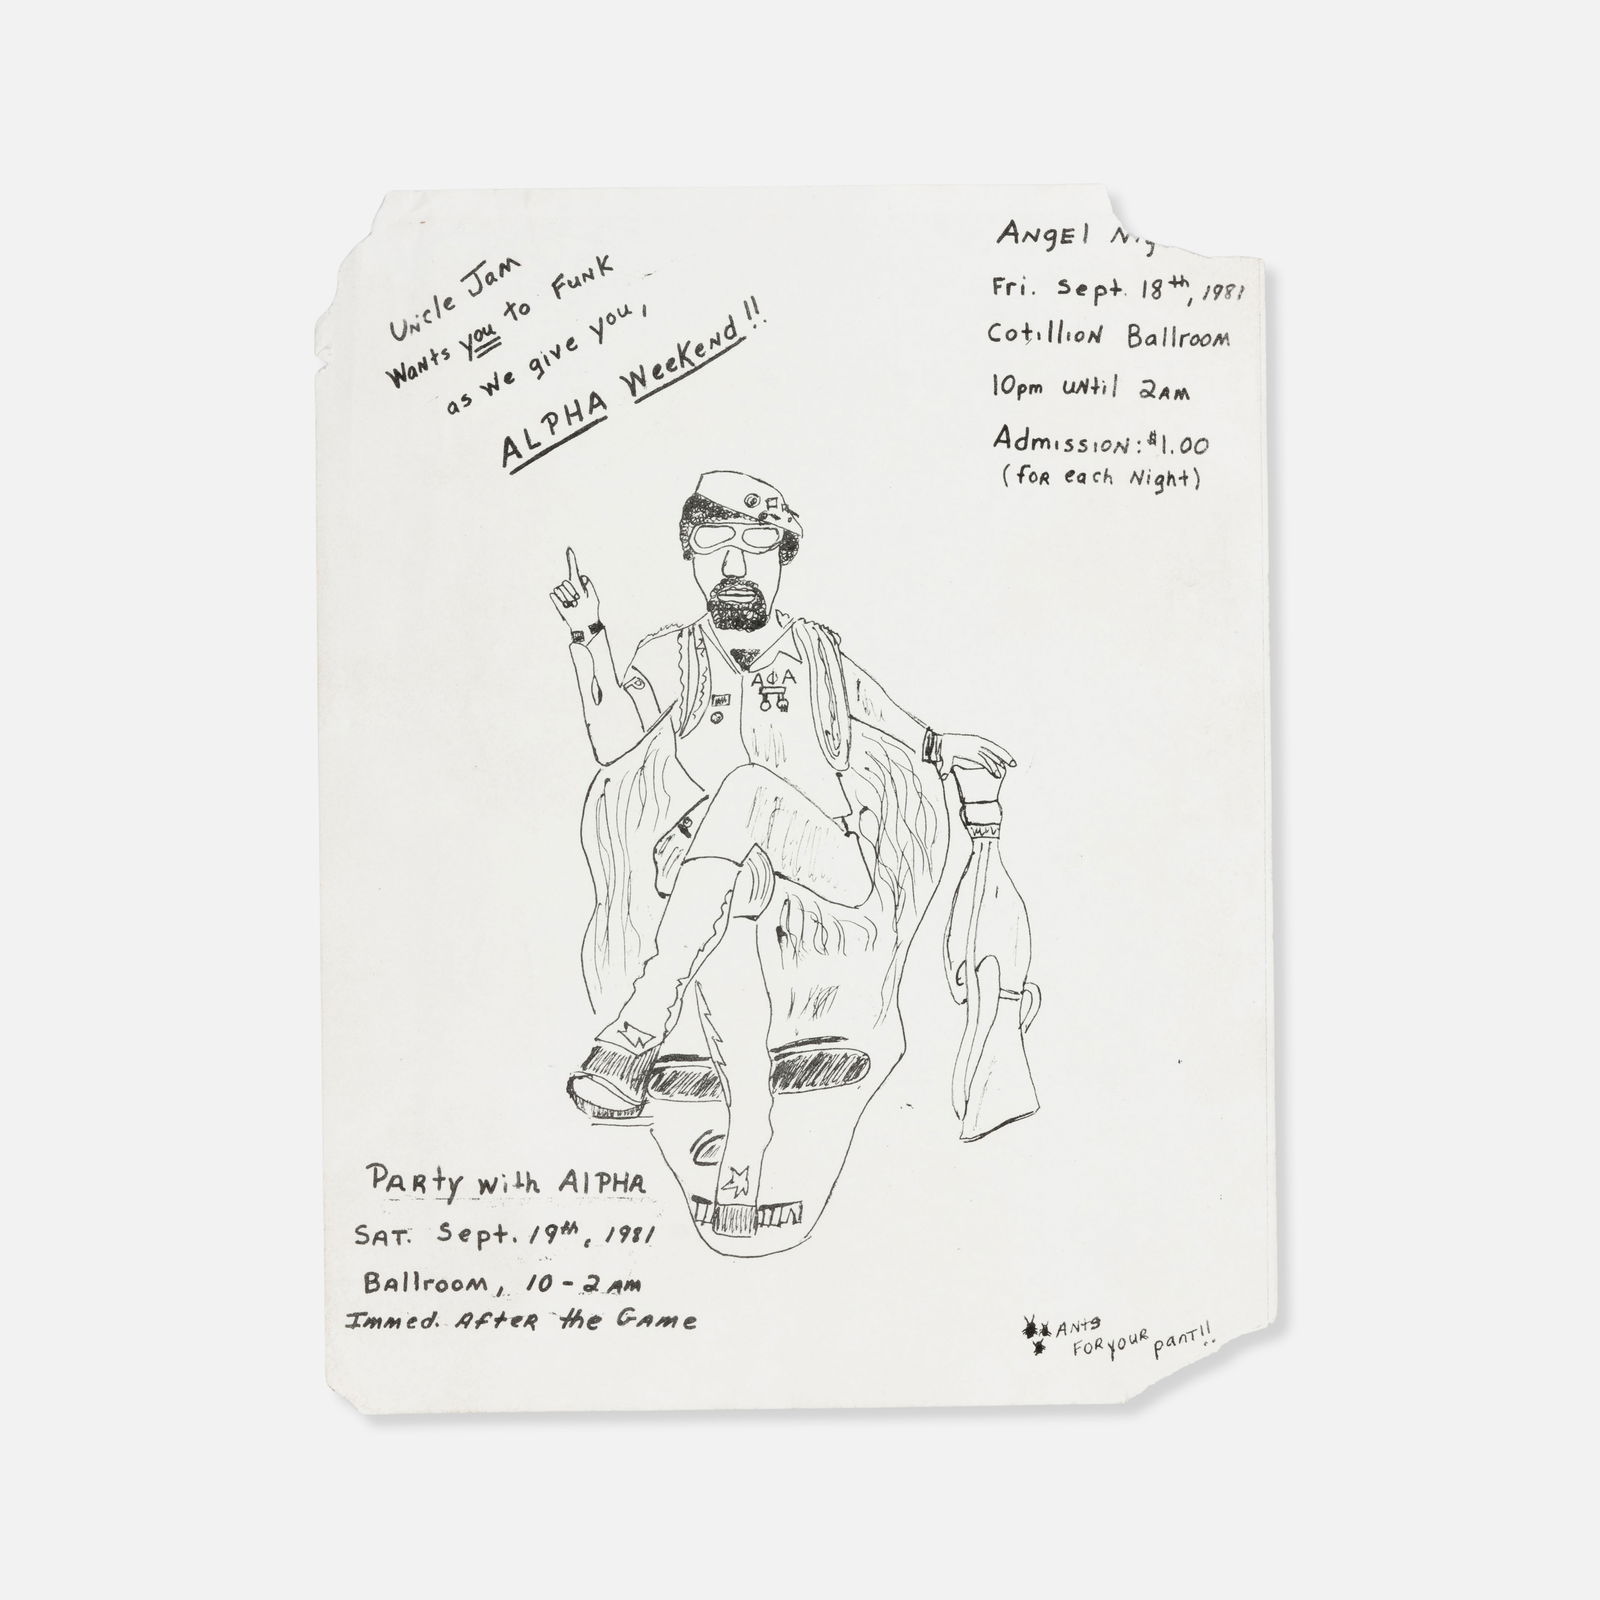 Uncle Jam
Wants you to Funk
as we give you,
ALPHA Weekend!!
Angel
Fri. Sept. 18th, 1981
Cotillion Ballroom
10pm until 2am
Admission: $1.00
(for each Night)
ΑΦΑ
Party with Alpha
Sat. Sept. 19th, 1981
Ballroom, 10-2am
Immed. After the Game
Ants
For your pant!!